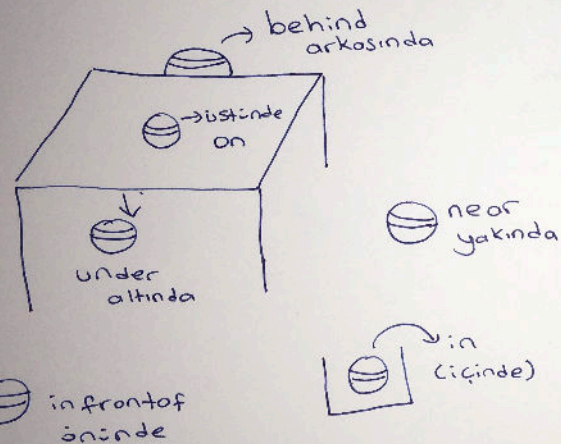 behind
arkasında
üstünde
on
under
altında
near
yakında
in
(içinde)
infrontof
önünde